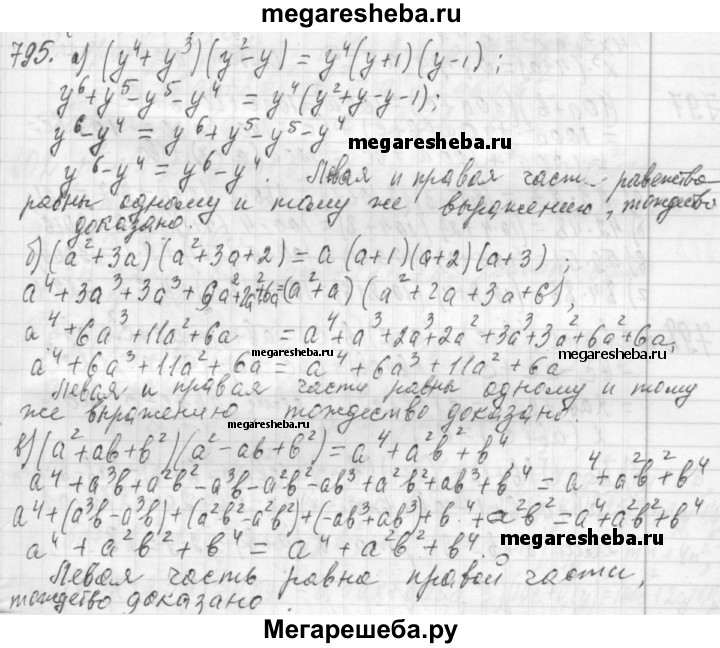 megaresheba.ru
795. а) (y⁴+y³)(y²-y) = y⁴(y+1)(y-1);
y⁶+y⁵-y⁵-y⁴ = y⁴(y²+y-y-1);
y⁶-y⁴ = y⁶+y⁵-y⁵-y⁴
megaresheba.ru
y⁶-y⁴ = y⁶-y⁴. Левая и правая част равенства
равны одному и тому же выражению, тождество
доказано.
б) (a²+3a)(a²+3a+2) = a(a+1)(a+2)(a+3);
a⁴+3a³+3a³+9a²+2a²+6a=(a²+a)(a²+2a+3a+6),
a⁴+6a³+11a²+6a = a⁴+a³+2a³+2a²+3a³+3a²+6a²+6a,
megaresheba.ru
megaresheba.ru
a⁴+6a³+11a²+6a = a⁴+6a³+11a²+6a
Левая и правая части равны одному и тому
же выражению тождество доказано.
megaresheba.ru
в) (a²+ab+b²)(a²-ab+b²)=a⁴+a²b²+b⁴,
a⁴+a³b+a²b²-a³b-a²b²-ab³+a²b²+ab³+b⁴ = a⁴+a²b²+b⁴
a⁴+(a³b-a³b)+(a²b²-a²b²)+(-ab³+ab³)+b⁴+a²b²=a⁴+a²b²+b⁴
a⁴+a²b²+b⁴ = a⁴+a²b²+b⁴.
megaresheba.ru
Левая часть равна правой части,
тождество доказано.
Мегарешеба.ру